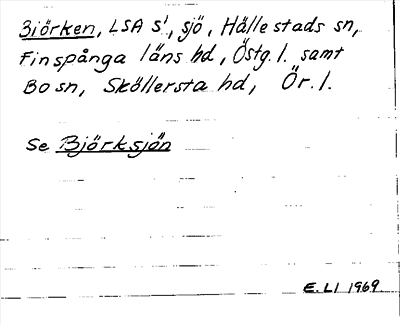 Biörken, LSA S1, sjö, Hällestads sn,
Finspånga läns hd, Östg. l. samt
Bo sn, Sköllersta hd, Ör. l.
Se Björksjön
E. LI 1969.